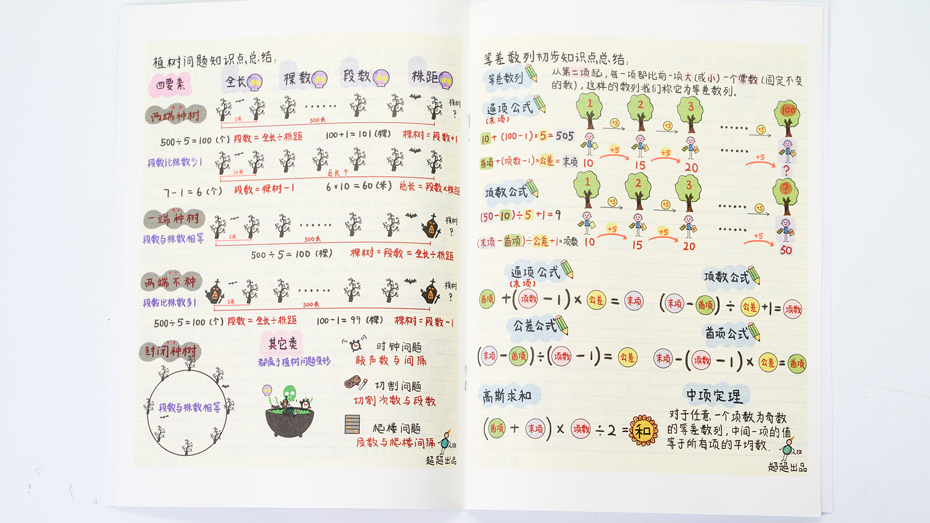 植树问题知识点总结:
四要素 全长 棵数 段数 株距
两端种树
500÷5=100(个) 段数=全长÷株距 100+1=101(棵) 棵树=段数+1
500米
段数比株数少1
总长?
7-1=6(个) 段数=棵树-1 6×10=60(米) 总长=段数×株距
一端种树
段数与株数相等
500米
500÷5=100(棵) 棵树=段数=全长÷株距
两端不种
段数比株数多1
500米
500÷5=100(个) 段数=全长÷株距 100-1=99(棵) 棵树=段数-1
封闭种树
段数与株数相等
其它类
都属于植树问题变形
时钟问题
敲声数与间隔
切割问题
切割次数与段数
爬楼问题
层数与爬楼间隔
超超出品
等差数列初步知识点总结:
等差数列 从第二项起,每一项都比前一项大(或小)一个常数(固定不变
的数),这样的数列我们称它为等差数列.
通项公式
(末项)
1 2 3 …… 100
+3 +3 +3
10+(100-1)×5=505
首项+(项数-1)×公差=末项
+5 +5 …… +5
10 15 20 ?
项数公式
1 2 3 …… ?
+3 +3 +3
(50-10)÷5+1=9
(末项-首项)÷公差+1=项数
+5 +5 …… +5
10 15 20 50
通项公式
(末项)
首项+(项数-1)×公差=末项
项数公式
(末项-首项)÷公差+1=项数
公差公式
(末项-首项)÷(项数-1)=公差
首项公式
末项-(项数-1)×公差=首项
高斯求和
(首项+末项)×项数÷2=和
中项定理
对于任意一个项数为奇数
的等差数列,中间一项的值
等于所有项的平均数.
超超出品